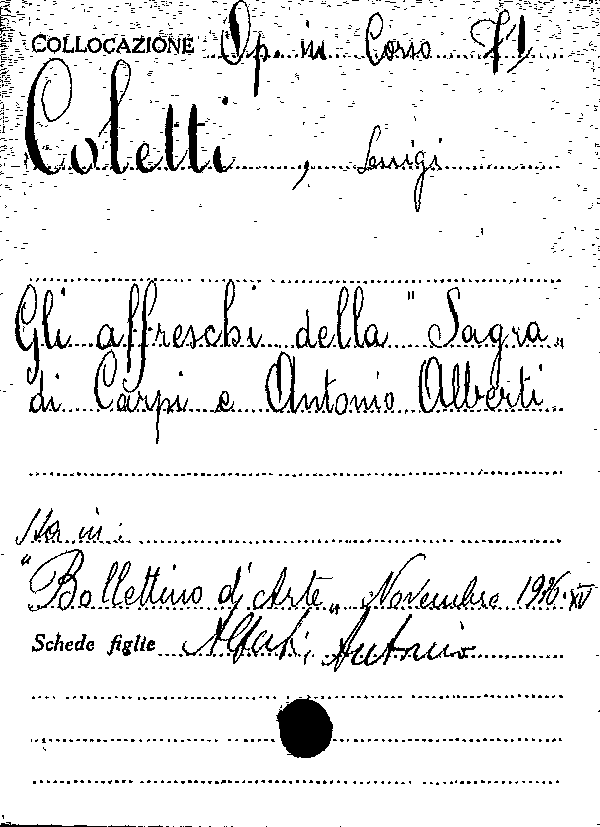 COLLOCAZIONE Op. in Corso 71
Coletti, Luigi
Gli affreschi della "Sagra„
di Carpi e Antonio Alberti
Sta in:
"Bollettino d'Arte„ Novembre 1936. XV
Schede figlie Alberti, Antonio